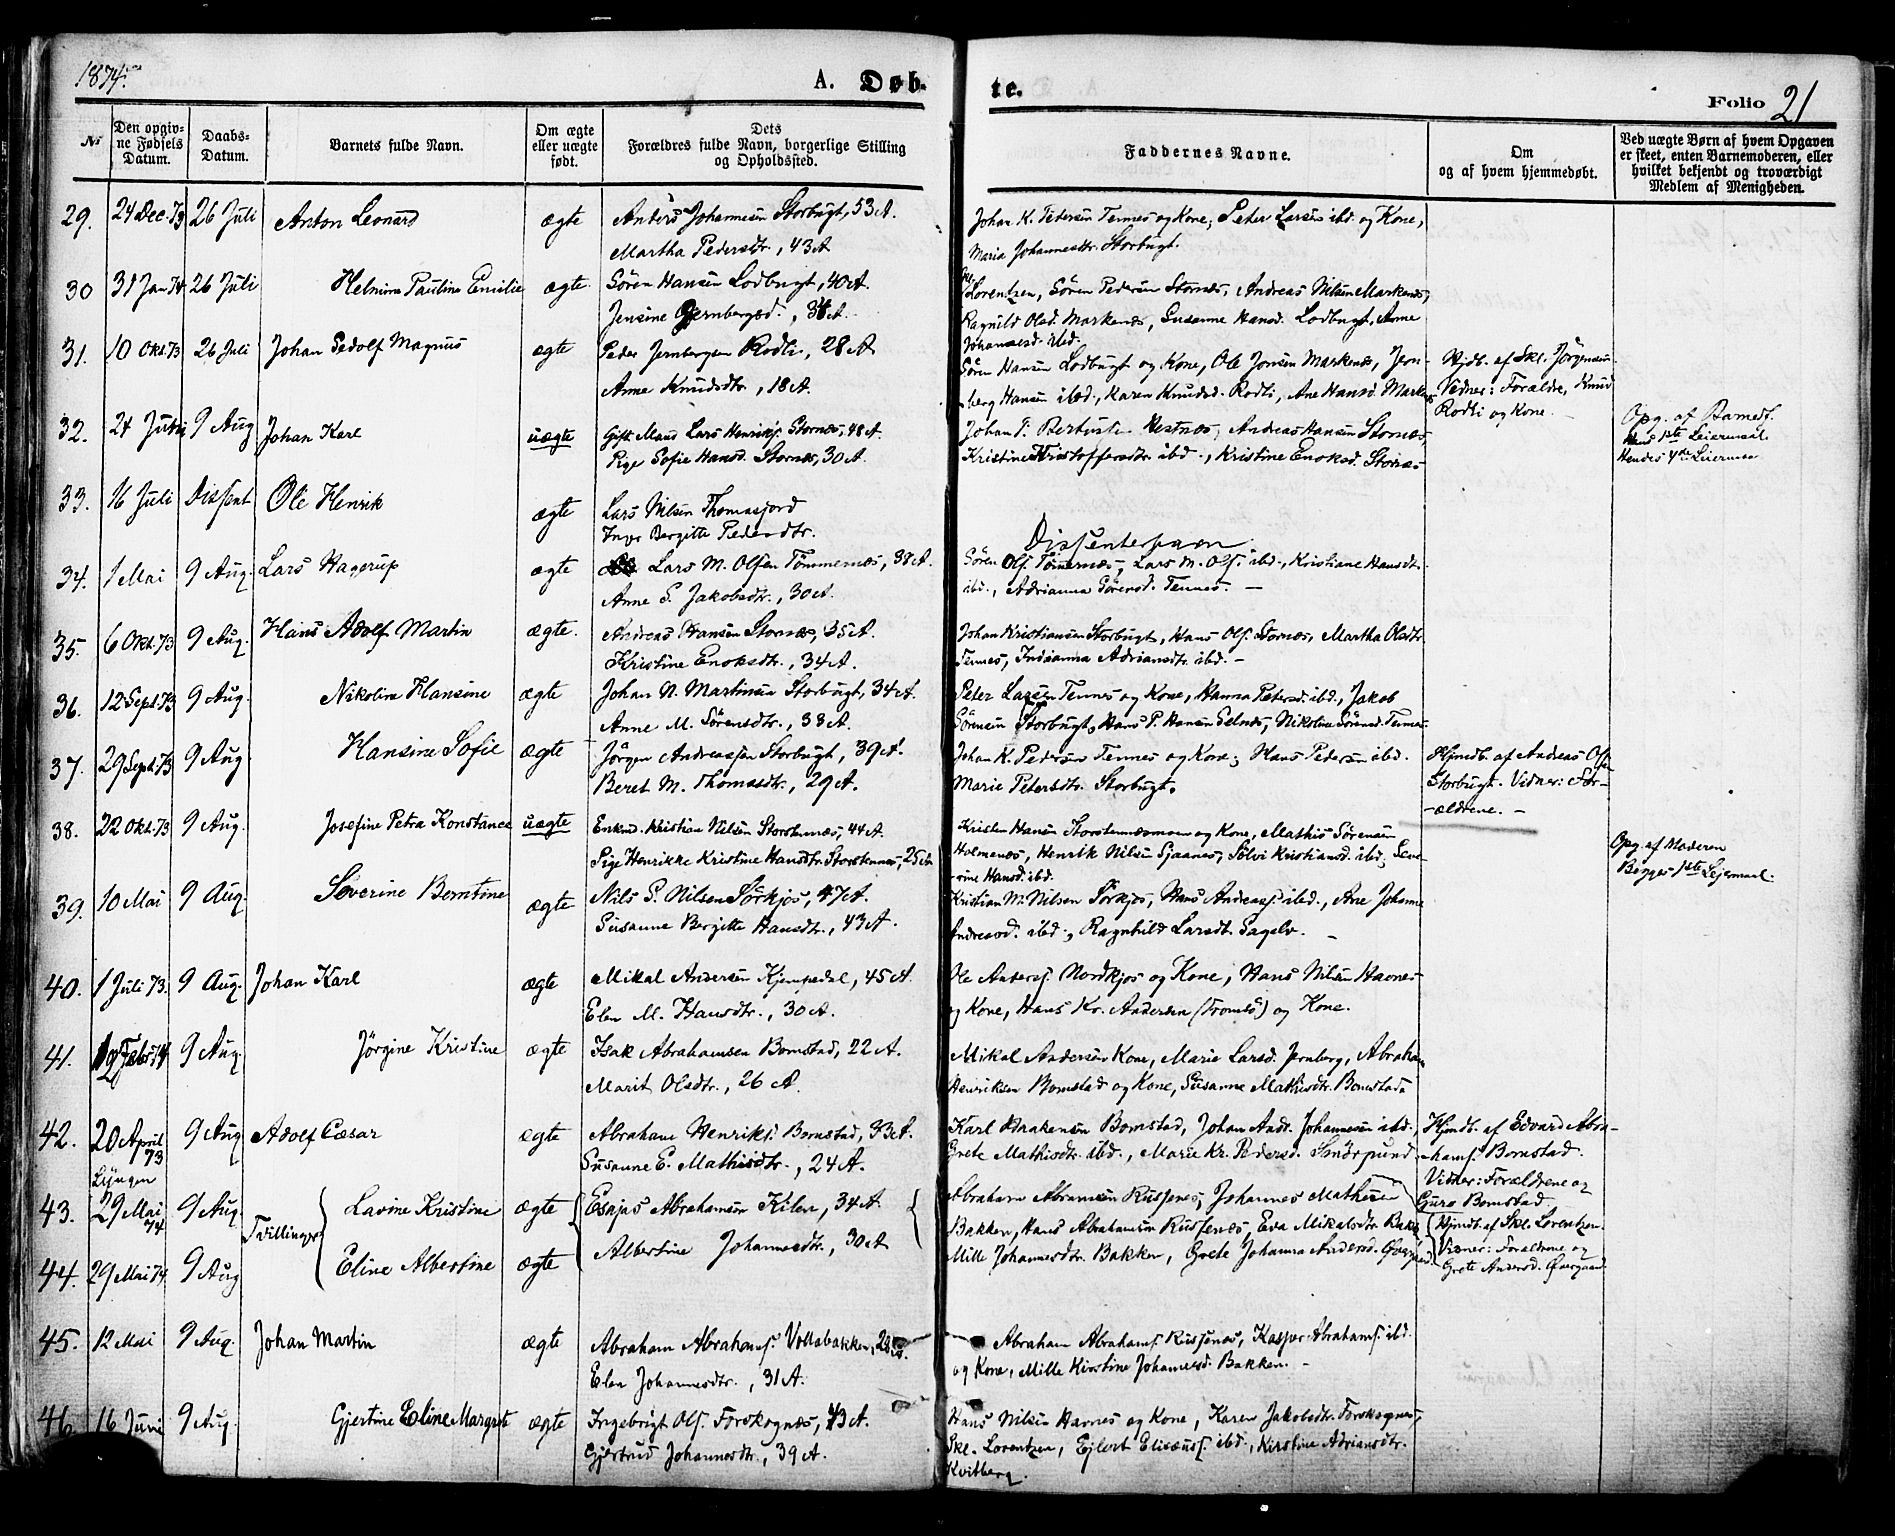 1874.
A. Døb-
te.
Folio 21
No
Den opgiv-
ne Fødsels
Datum.
Daabs-
Datum.
Barnets fulde Navn.
Om ægte
eller uægte
født.
Dets
Forældres fulde Navn, borgerlige Stilling
og Opholdssted.
Faddernes Navne.
Om
og af hvem hjemmedøbt.
Ved uægte Børn af hvem Opgaven
er skeet, enten Barnemoderen, eller
hvilket bekjendt og troværdigt
Medlem af Menigheden.
29. 24 Dec. 73 26 Juli Anton Leonard ægte Anders Johannesen Storbugt, 53 A. Johan K. Pedersen Tennes og Kone, Peter Larsen ibd. og Kone,
Martha Pedersdtr., 43 A Maria Johannesdtr. Storbugt.
30 31 Jan 74 26 Juli Helmine Pauline Emilie ægte. Sören Hansen Lodbugt, 40 A. Lorentzen, Sören Pedersen Stornes, Andreas Nilsen Markenes,
Jensine Jernbergsd., 34 A. Ragnild Olsd. Markenes, Susanne Hansd. Lodbugt, Anne
Johannesd. ibd.
31. 10 Okt. 73 26 Juli Johan Pedolf Magnus ægte Peder Jernbergsen Rodli, 28 A Sören Hansen Lodbugt og Kone, Ole Jonsen Markenes, Jern-
Anne Knudsdtr., 18 A. berg Hansen ibd., Karen Knudsd. Rodli, Ane Hansd. Markenes
Hjdb. af Skl. Jörgensen
Vidner: Forældre, Knud
Rodli og Kone.
32. 24 Juni 9 Aug Johan Karl uægte Gift Mand Lars Henriks. Stornes, 48 A. Johan P. Hestnes, Andreas Hansen Stornes
Pige Sofie Hansd. Stornes, 30 A. Kristine Kristoffersdtr. ibd., Kristine Enoksd. Stornes
Opg. af Barnef.
Hans 1ste Leiermaal
Hendes 4de Leiermaal
33. 16 Juli Dissent Ole Henrik ægte Lars Nilsen Thomasjord
Inger Bergitte Pedersdtr.
Dissenterbarn
34. 1 Mai 9 Aug. Lars Hagerup ægte Lars M. Olsen Tömmernes, 38 A. Sören Ols. Tömmernes, Lars M. Ols. ibd., Kristiane Hansdt.
Anne S. Jakobsdtr., 30 A. ibd., Adrianna Sörensd. Tennes. —
35. 6 Okt. 73 9 Aug. Hans Adolf Martin ægte. Andreas Hansen Stornes, 35 A. Johan Kristiansen Storbugt, Hans Ols. Stornes, Martha Olsdtr.
Kristine Enoksdtr., 34 A. Tennes, Indianna Adriansdtr. ibd. —
36. 12 Sept. 73 9 Aug. Nikoline Hansine ægte Johan N. Martinsen Storbugt, 34 A. Peter Larsen Tennes og Kone, Hanna Petersd. ibd., Jakob
Anne M. Sörensdtr., 38 A. Sörensen Storbugt, Hans P. Hansen Selnes, Nikoline Sörensd. Tennes
37. 29 Sept. 73 9 Aug Hansine Sofie ægte Jörgen Andreassen Storbugt, 39 A. Johan K. Pedersen Tennes og Kone, Hans Pedersen ibd.
Beret M. Thomasdtr., 29 A. Marie Petersdtr. Storbugt.
Hjmdb. af Andreas Ols
Storbugt. Vidner: For-
ældrene. —
38. 22 Okt. 73 9 Aug. Josefine Petra Konstance uægte Enkmd. Kristian Nilsen Storstennes, 44 A. Kristen Hansen Storstennesmoen og Kone, Mathis Sörensen
Pige Henrikke Kristine Hansdtr. Storstennes, 25 A Holmenes, Henrik Nilsen Sjaanes, Sölvi Kristiansd. ibd., Seve-
rine Hansd. ibd.
Opg. af Moderen
Begges 1ste Leiermaal.
39. 10 Mai 9 Aug. Severine Berntine ægte Nils P. Nilsen Sörkjos, 47 A. Kristian M. Nilsen Sörkjos, Hans Andreass. ibd., Ane Johanne
Susanne Bergitte Hansdtr., 43 A. Andreasd. ibd., Ragnhild Larsdt. Sagelv. —
40. 1 Juli 73. 9 Aug. Johan Karl ægte Mikal Andersen Kjempedal, 45 A. Ole Anders. Nordkjos og Kone, Hans Nilsen Havnes
Elen M. Hansdtr., 30 A. og Kone, Hans Kr. Andersen (Tromsö) og Kone.
41. 19 Febr. 74 9 Aug. Jörgine Kristine ægte Isak Abrahamsen Bomstad, 22 A. Mikal Andersen Kone, Marie Larsd. Jernberg, Abraham
Marit Olsdtr., 26 A. Henriksen Bomstad og Kone, Susanne Mathisdtr. Bomstad.
42. 20 April 73 9 Aug Adolf Cæsar ægte Abraham Henriks. Bomstad, 33 A. Karl Haakensen Bomstad, Johan Andr. Johannesen ibd.,
Lyngen Susanne E. Mathisdtr., 24 A. Grete Mathisdtr. ibd., Marie Kr. Pedersd.
Hjmdb. af Edvard Abra-
hams. Bomstad.
Vidner: Forældrene og
Guro Bomstad
43. 29 Mai 74 9 Aug. Tvillinger Lavine Kristine ægte Esajas Abrahamsen Kilen, 34 A. Abraham Abramsen Russenes, Johannes Mathisen
Bakken, Hans Abrahamsen Russenes, Eva Mikalsdtr. Bakk
44. 29 Mai 74. 9 Aug Eline Albertine ægte Albertine Johannesdtr., 30 A Mille Johannesdtr. Bakken, Grete Johanna Andersd. Övergaard.
Hjmdb. af Skl. Lorentzen.
Vidner: Forældrene og
Grete Andersd. Övergaard.
45. 12 Mai 9 Aug. Johan Martin ægte Abraham Abrahams. Vollabakken, 28 A. Abraham Abrahams. Russenes, Kasper Abrahams. ibd.
Elen Johannesdtr., 31 A. og Kone, Mille Kirstine Johannesd. Bakken. —
46 16 Juni 9 Aug. Gjertine Eline Margrete ægte Ingebrigt Ols. Forskognes, 43 A. Hans Nilsen Havnes og Kone, Karen Jakobsdtr. Forskognes,
Gjertrud Johannesdtr., 39 A. Skl. Lorentzen, Ejlert Elisæus. ibd., Kirstine Adriansdtr.
Kvitberg.